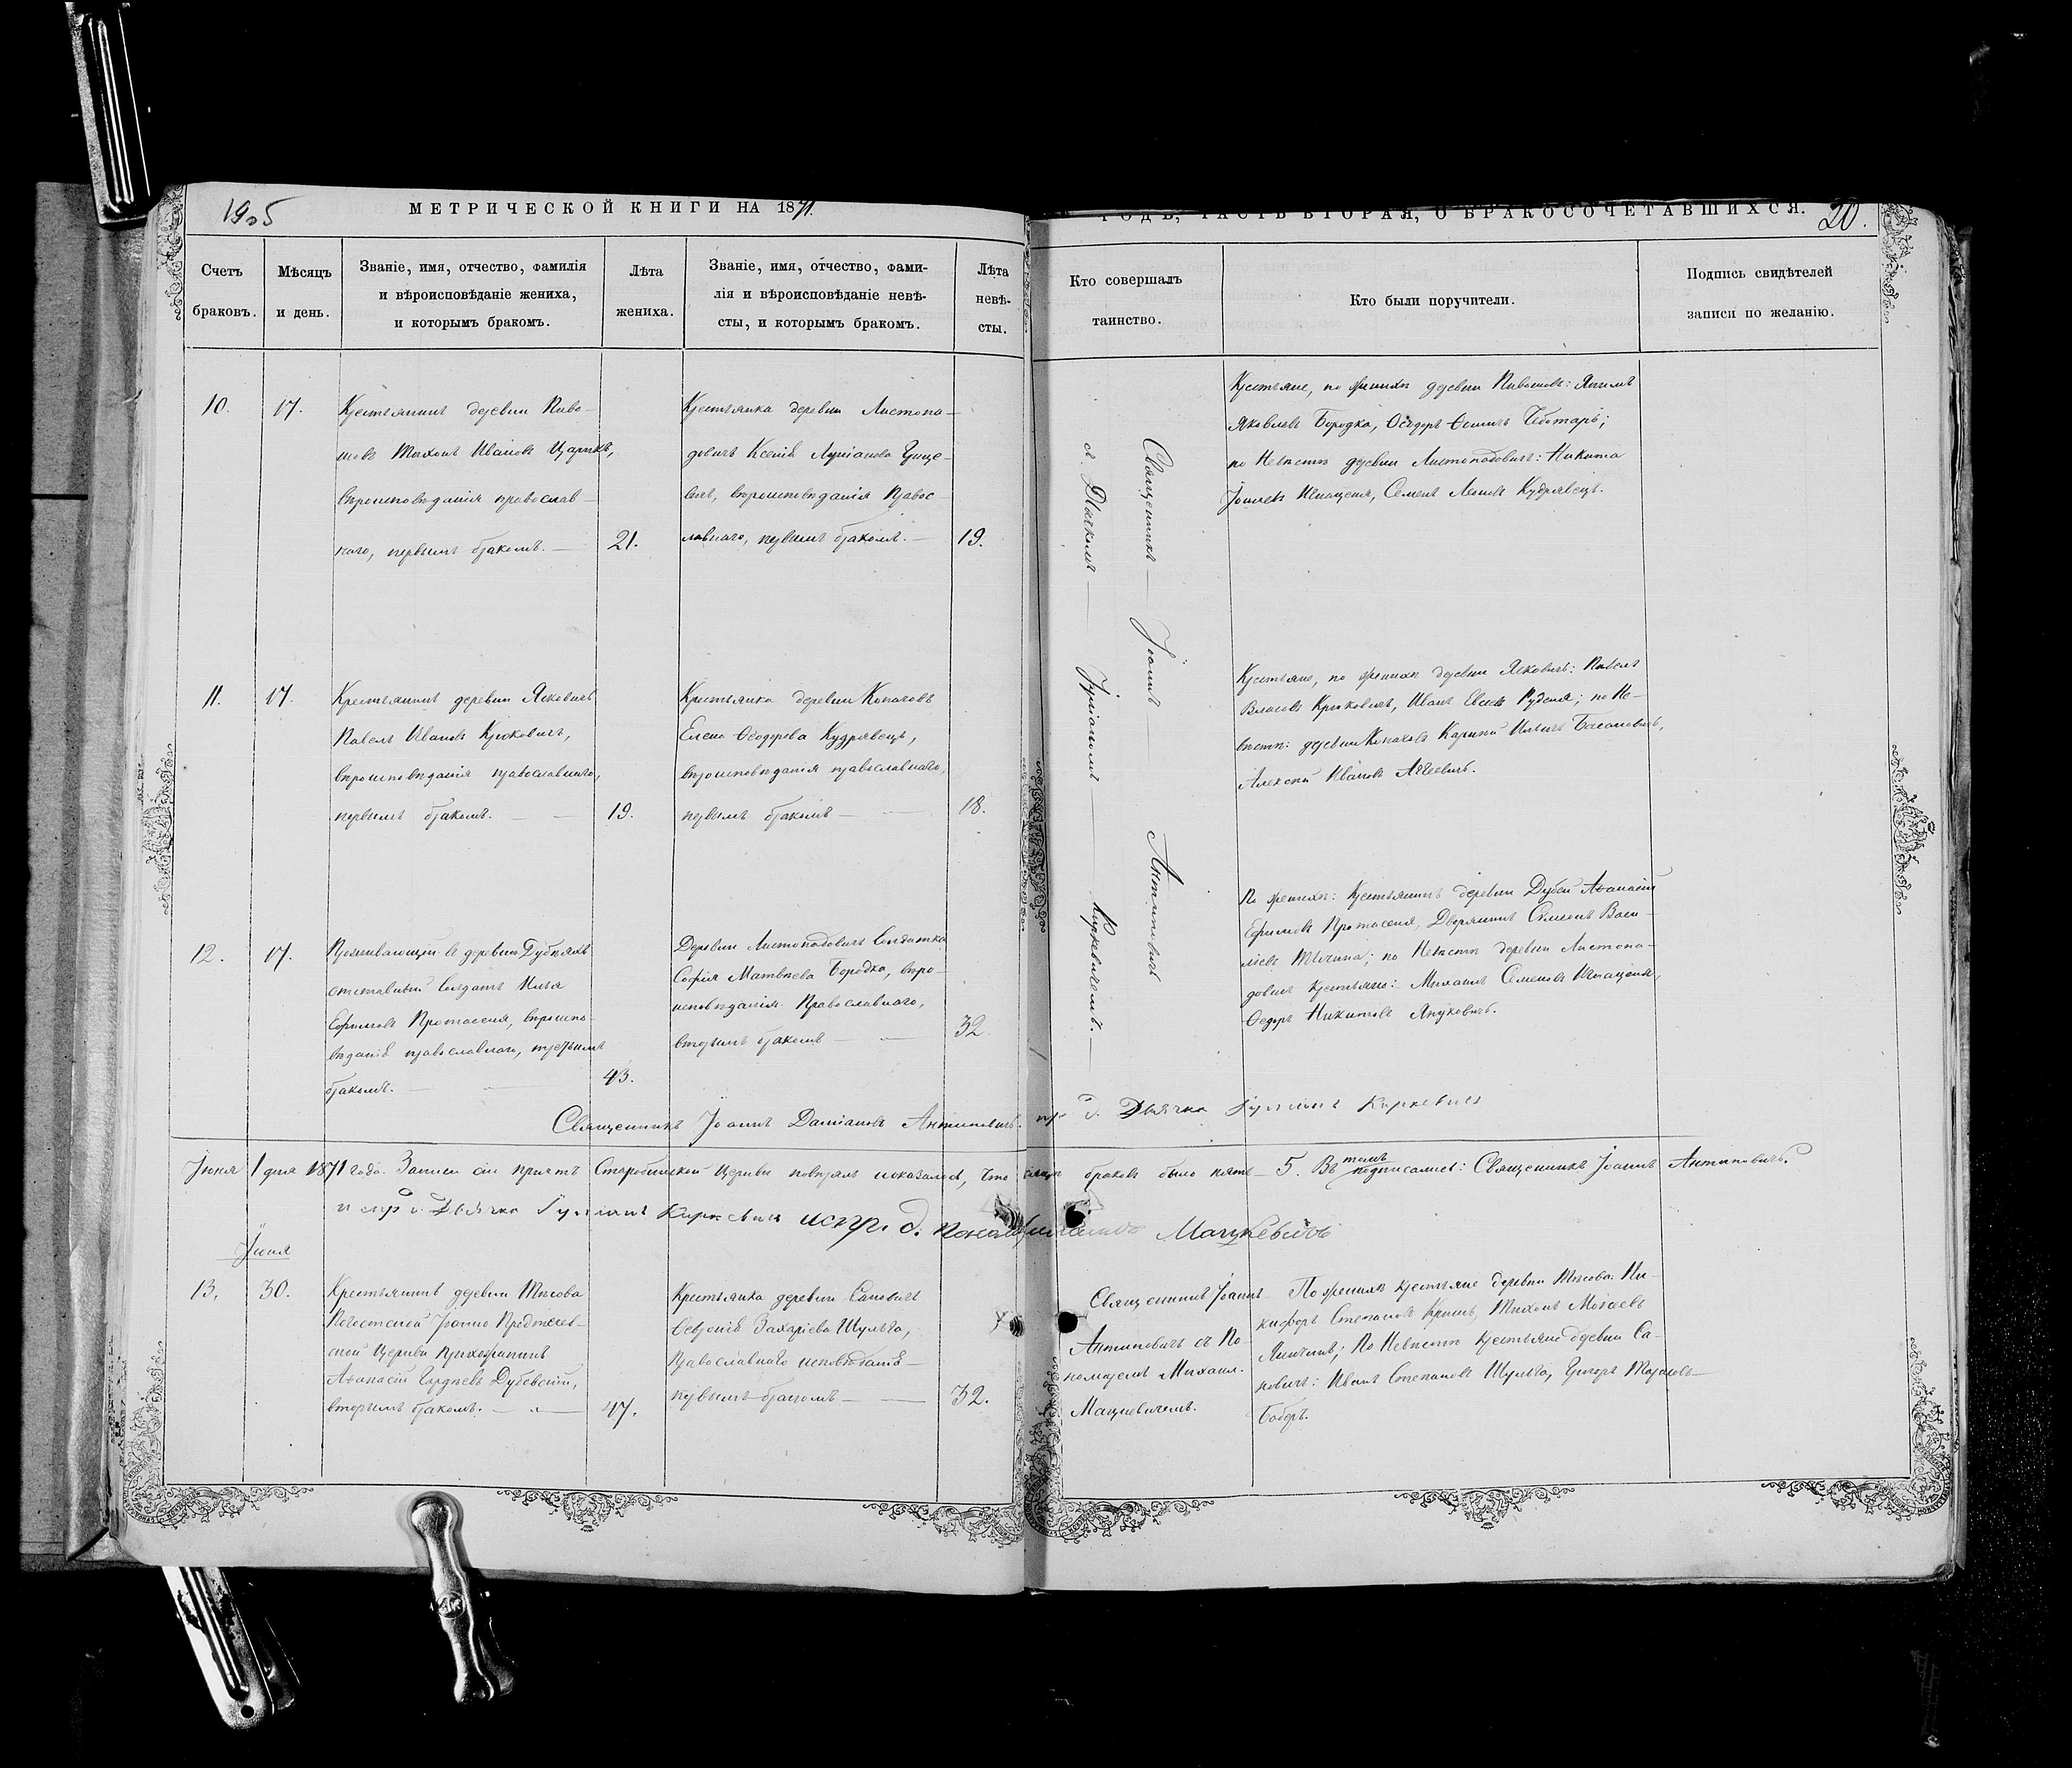 1905
МЕТРИЧЕСКОЙ КНИГИ НА 1871.
ГОДЪ, ЧАСТЬ ВТОРАЯ, О БРАКОСОЧЕТАВШИХСЯ.
20.
Счетъ
браковъ.
Мѣсяцъ
и день.
Званіе, имя, отчество, фамилія
и вѣроисповѣданіе жениха,
и которымъ бракомъ.
Лѣта
жениха.
Званіе, имя, отчество, фами-
лія и вѣроисповѣданіе невѣ-
сты, и которымъ бракомъ.
Лѣта
невѣ-
сты.
Кто совершалъ
таинство.
Кто были поручители.
Подпись свидѣтелей
записи по желанію.
10.
17.
Крестьянинъ деревни Пиво-
шовъ Тихонъ Ивановъ Царикъ,
вѣроисповѣданія православ-
наго, первымъ бракомъ. —
21.
Крестьянка деревни Листопа-
довичъ Ксенія
вѣроисповѣданія Правос-
лавнаго, первымъ бракомъ. —
19.
Священникъ — Іоаннъ — Антиповичъ
Киркевичемъ. —
Крестьяне, по женихѣ деревни Якимъ
Яковлевъ Бородка, Ѳеодоръ Чеботарь;
по Невѣстѣ деревни Листопадовичъ: Никита
Игнаценя, Семенъ Кудрявецъ.
11.
17.
Крестьянинъ деревни Ясковичъ
Павелъ Ивановъ Крюковичъ,
вѣроисповѣданія православнаго,
первымъ бракомъ. — —
19.
Крестьянка деревни Копачовъ
Елена Ѳеодорова Кудрявецъ,
вѣроисповѣданія православнаго,
первымъ бракомъ — —
18.
Крестьяне, по женихѣ деревни Ясковичъ: Павелъ
Власовъ Крюковичъ, Иванъ Руденя; по Не-
вѣстѣ: деревни Копачовъ
Алексѣй Ивановъ
12.
17.
Проживающій въ деревни
отставный Солдатъ Илья
Ефимовъ Протасеня, вѣроиспо-
вѣданія православнаго, третьимъ
бракомъ. —
43.
Деревни Листопадовичъ Солдатка
Софія Матвѣева Бородка, вѣро-
исповѣданія Православнаго,
вторымъ бракомъ — —
32
По женихѣ: Крестьянинъ деревни Дубей Аѳанасій
Ефимовъ Протасеня, Дворянинъ Симеонъ Васи-
льевъ по Невѣстѣ деревни Листопа-
довичъ крестьяне: Михаилъ Семеновъ Игнаценя,
Ѳедоръ Никитовъ Януковичъ.
Священникъ Іоаннъ Даміановъ Антиповичъ. пр. д. Дьячка Киркевичъ
Іюня 1 дня 1871 года. Записи сіи причтъ Старобинской Церкви повѣрялъ и оказалось, что браковъ было пять — 5. Въ томъ подписались: Священникъ Іоаннъ Антиповичъ.
и Дьячка Киркевичъ испр. д. Мацкевичъ
Іюня
13.
30.
Крестьянинъ деревни Тѣсова
Погостской Іоанно Предтечев-
ской Церкви Прихожанинъ
Аѳанасій Дубовскій,
вторымъ бракомъ. — —
47.
Крестьянка деревни
Захаріева Шульга,
Православнаго исповѣданія —
первымъ бракомъ — —
32.
Священникъ Іоаннъ
Антиповичъ съ По-
номаремъ Михаил.
Мацкевичемъ.
По женихѣ крестьяне деревни Тѣсова: Ни-
кифоръ Степановъ Тихонъ
По Невѣстѣ крестьяне деревни Са-
ковичъ: Иванъ Степановъ Шульга, Григорій Тарасовъ
Боберъ.